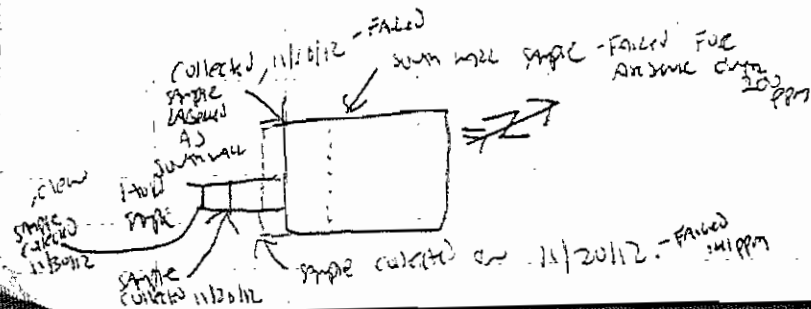 Collected 11/20/12 - FAILED
sample
labeled
AS
South wall
South wall sample - Failed For
Arsenic over
200
ppm
N
Clean
sample
collected
11/30/12
sample
sample
collected 11/20/12
sample collected on 11/20/12. - FAILED
141 ppm